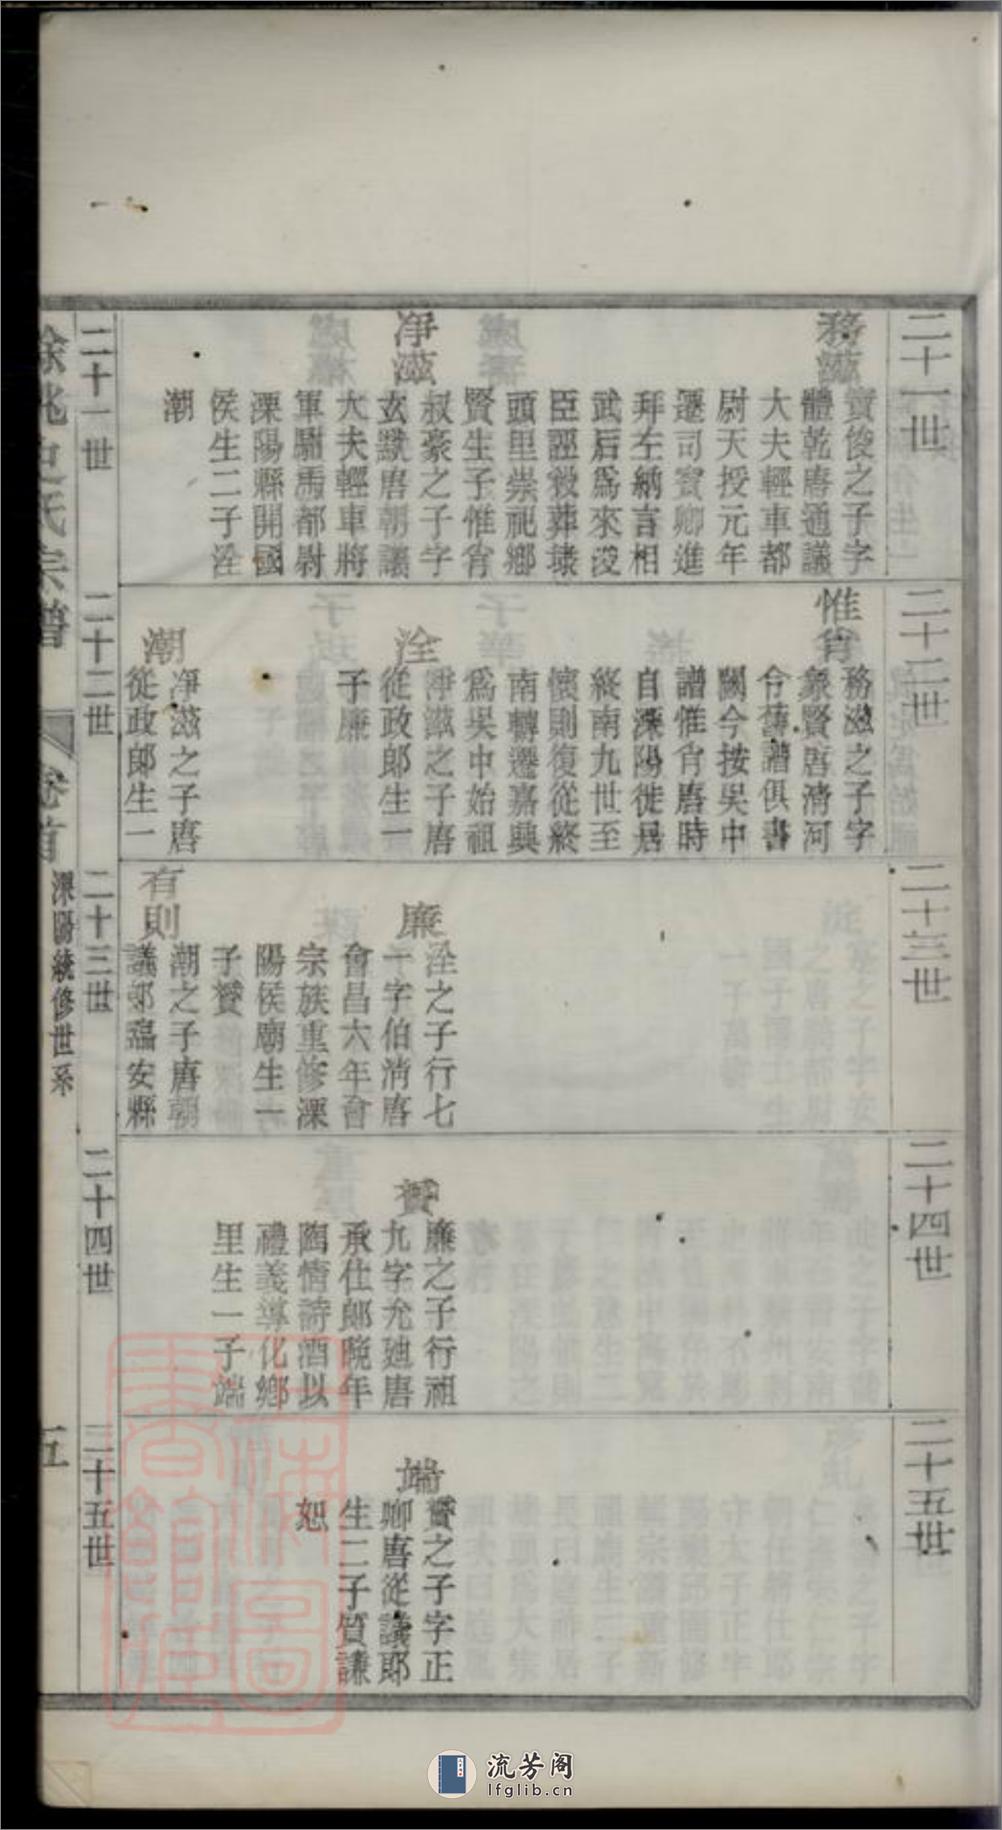 二十一世
務滋
實俊之子字
體乾唐通議
大夫輕車都
尉天授元年
遷司賓卿進
拜左納言相
武后爲來沒
臣誣殺葬埭
頭里崇祀鄉
賢生子惟肖
净滋
叔豪之子字
玄默唐朝議
大夫輕車將
軍駙馬都尉
溧陽縣開國
侯生二子泩
潮
二十一世
二十二世
惟肖
務滋之子字
象賢唐清河
令舊譜俱書
闕今按吳中
譜惟肖唐時
自溧陽徙居
終南九世至
懷則復從終
南轉遷嘉興
爲吳中始祖
泩
淨滋之子唐
從政郎生一
子廉
潮
凈滋之子唐
從政郎生一
二十二世
二十三世
廉
泩之子行七
一字伯清唐
會昌六年會
宗族重修溧
陽侯廟生一
子贇
有則
潮之子唐朝
議郎臨安縣
二十三世
二十四世
贇
廉之子行祖
九字允迪唐
承仕郎晚年
陶情詩酒以
禮義導化鄉
里生一子端
二十四世
二十五世
端
贇之子字正
卿唐從議郎
生二子質謙
恕
二十五世
史氏宗譜
卷首
溧陽統修世系
五
流芳阁
lfglib.cn